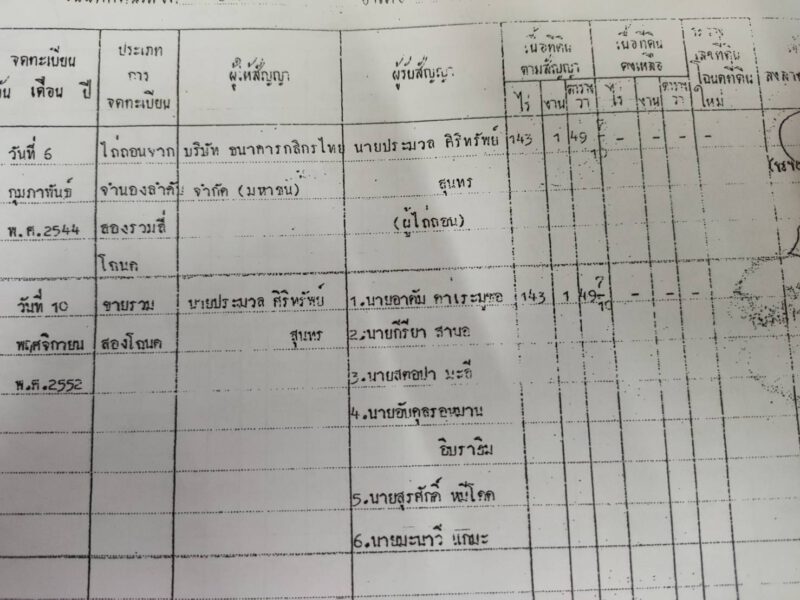 จดทะเบียน
วัน เดือน ปี
ประเภท
การ
จดทะเบียน
ผู้ให้สัญญา
ผู้รับสัญญา
เนื้อที่ดิน
ตามสัญญา
ไร่ งาน ตาราง
วา
เนื้อที่ดิน
คงเหลือ
ไร่ งาน ตาราง
วา
เลขที่ดิน
โฉนดที่ดิน
ใหม่
วันที่ 6 ไถ่ถอนจาก บริษัท ธนาคารกสิกรไทย นายประมวล ศิริทรัพย์ 143 1 49 7/10 - - - -
กุมภาพันธ์ จำนองลำดับ จำกัด (มหาชน) สุนทร
พ.ศ.2544 สองรวมสี่ (ผู้ไถ่ถอน)
โฉนด
วันที่ 10 ขายรวม นายประมวล ศิริทรัพย์ 1.นายอาดัม 143 1 49 7/10 - - - -
พฤศจิกายน สองโฉนด สุนทร 2.นายกีรียา
พ.ศ.2552 3.นาย
4.นายอับดุลรอหมาน
อิบราฮิม
5.นายสุรศักดิ์ หมีโดด
6.นายมะนาวี